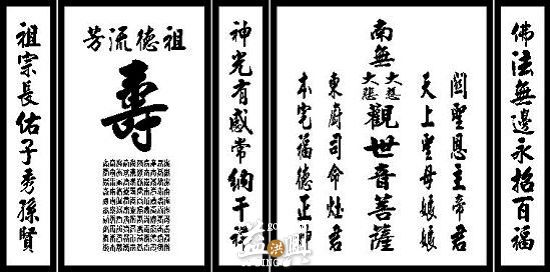 佛法無邊永招百福
關聖恩主帝君
天上聖母娘娘
南無大慈大悲觀世音菩薩
東廚司命灶君
本宅福德正神
神光有感常納千祥
祖德流芳
壽
祖宗長佑子秀孫賢